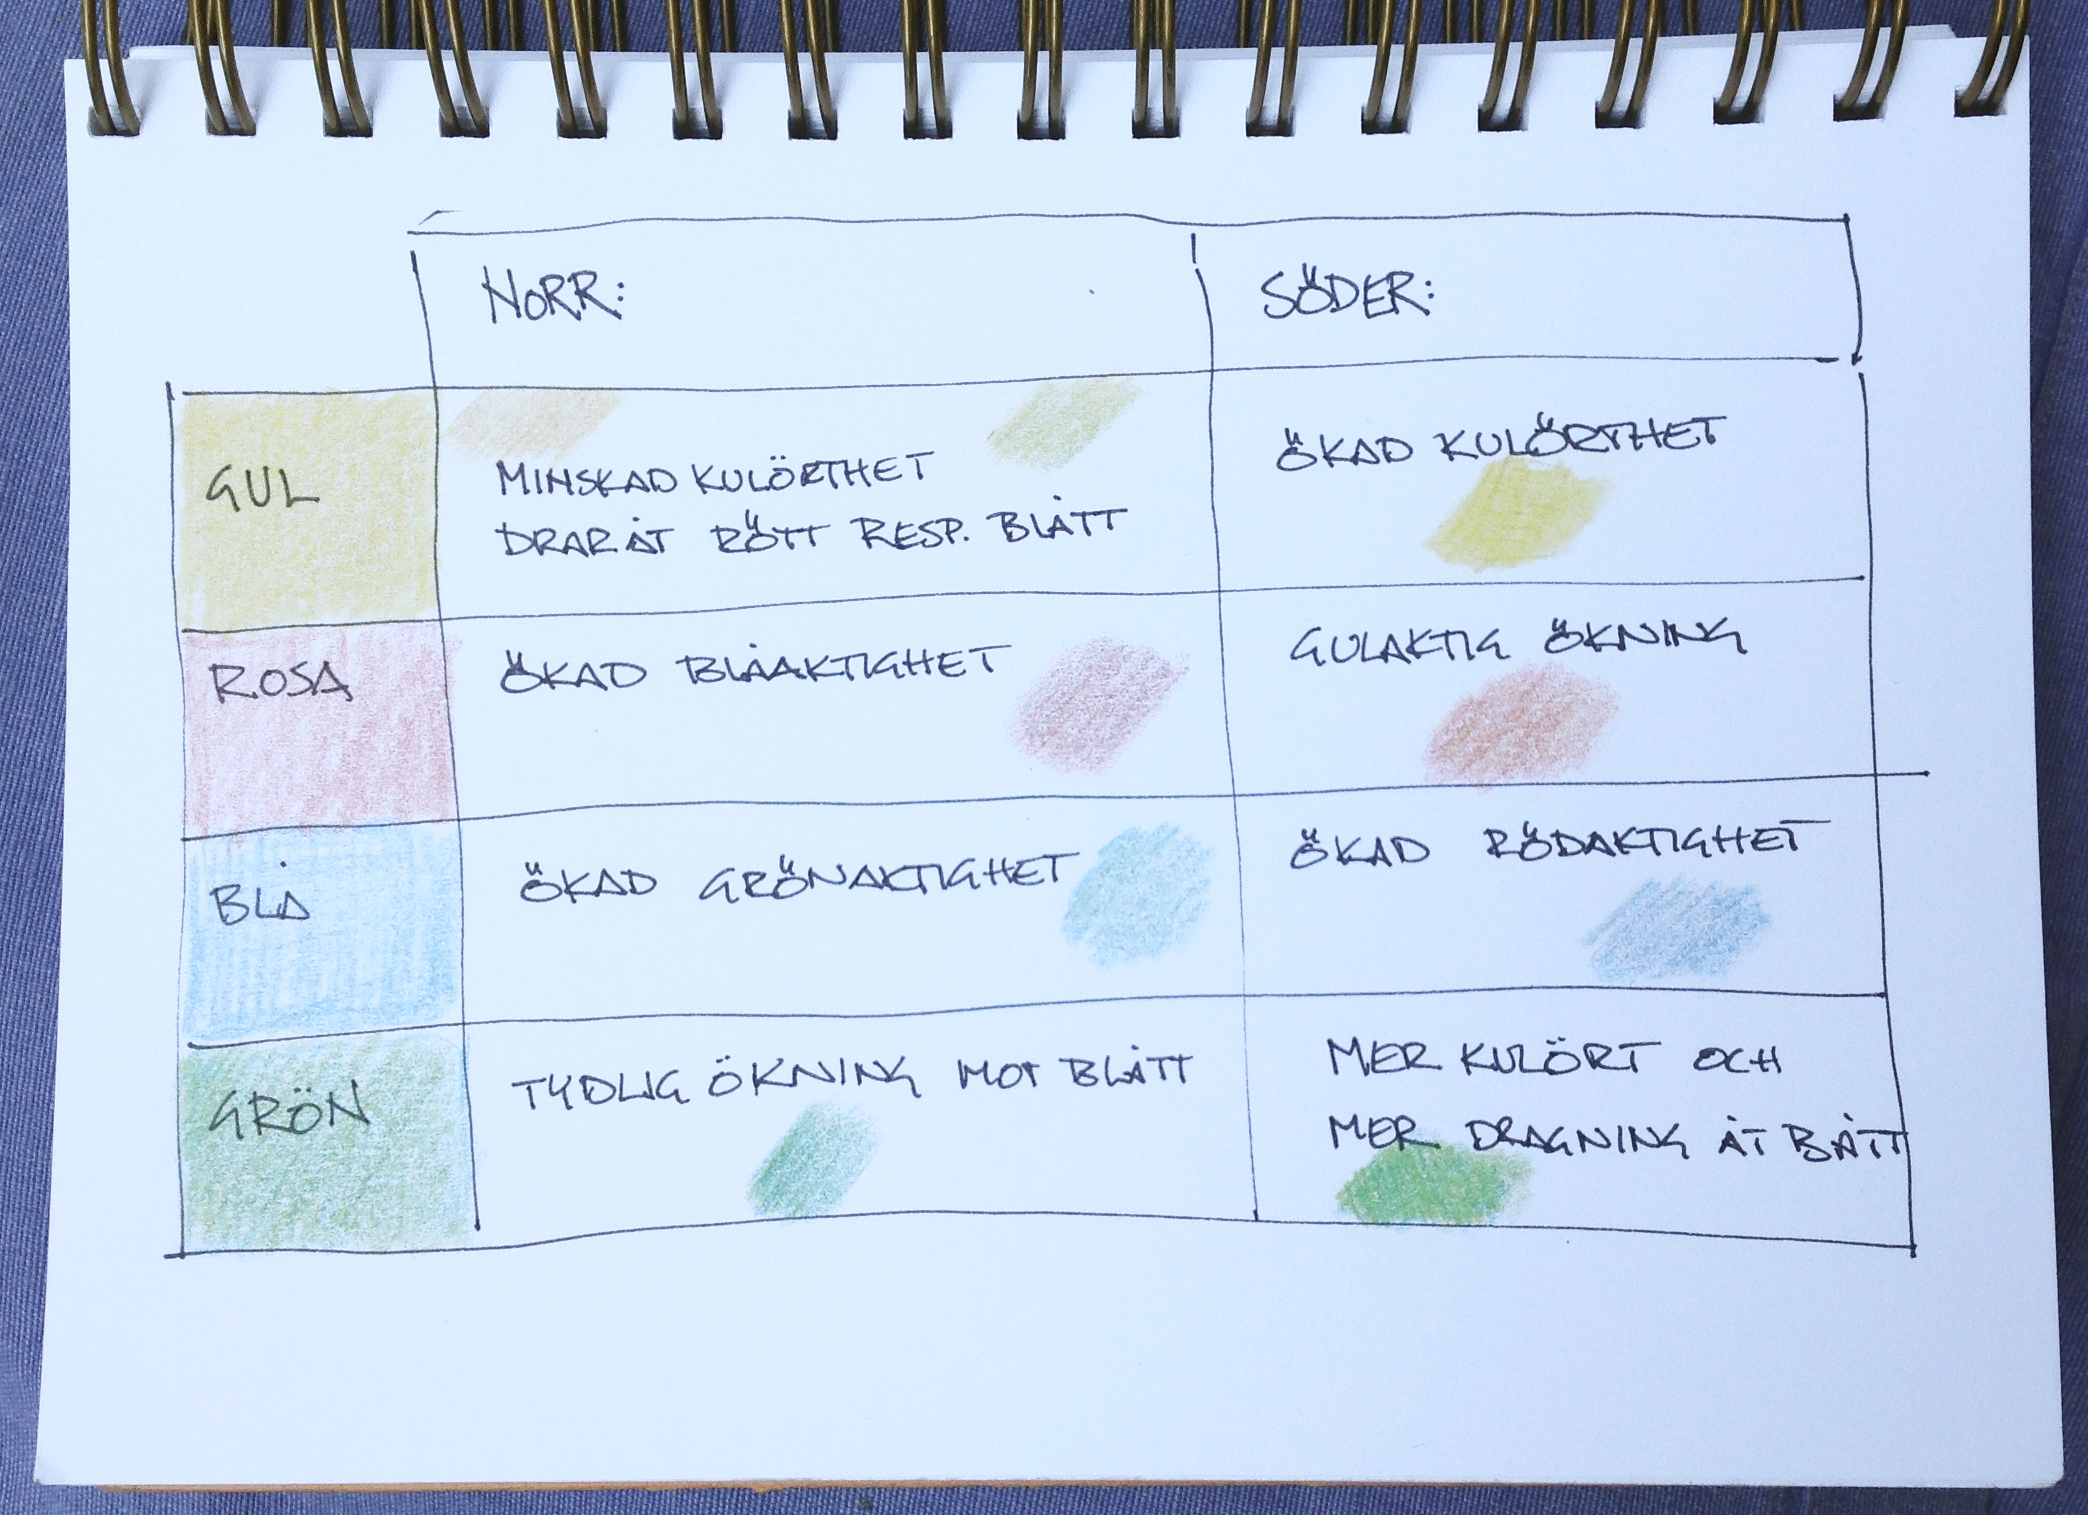 NORR:
SÖDER:
GUL
MINSKAD KULÖRTHET
DRAR ÅT RÖTT RESP. BLÅTT
ÖKAD KULÖRTHET
ROSA
ÖKAD BLÅAKTIGHET
GULAKTIG ÖKNING
BLÅ
ÖKAD GRÖNAKTIGHET
ÖKAD RÖDAKTIGHET
GRÖN
TYDLIG ÖKNING MOT BLÅTT
MER KULÖRT OCH
MER DRAGNING ÅT BLÅTT